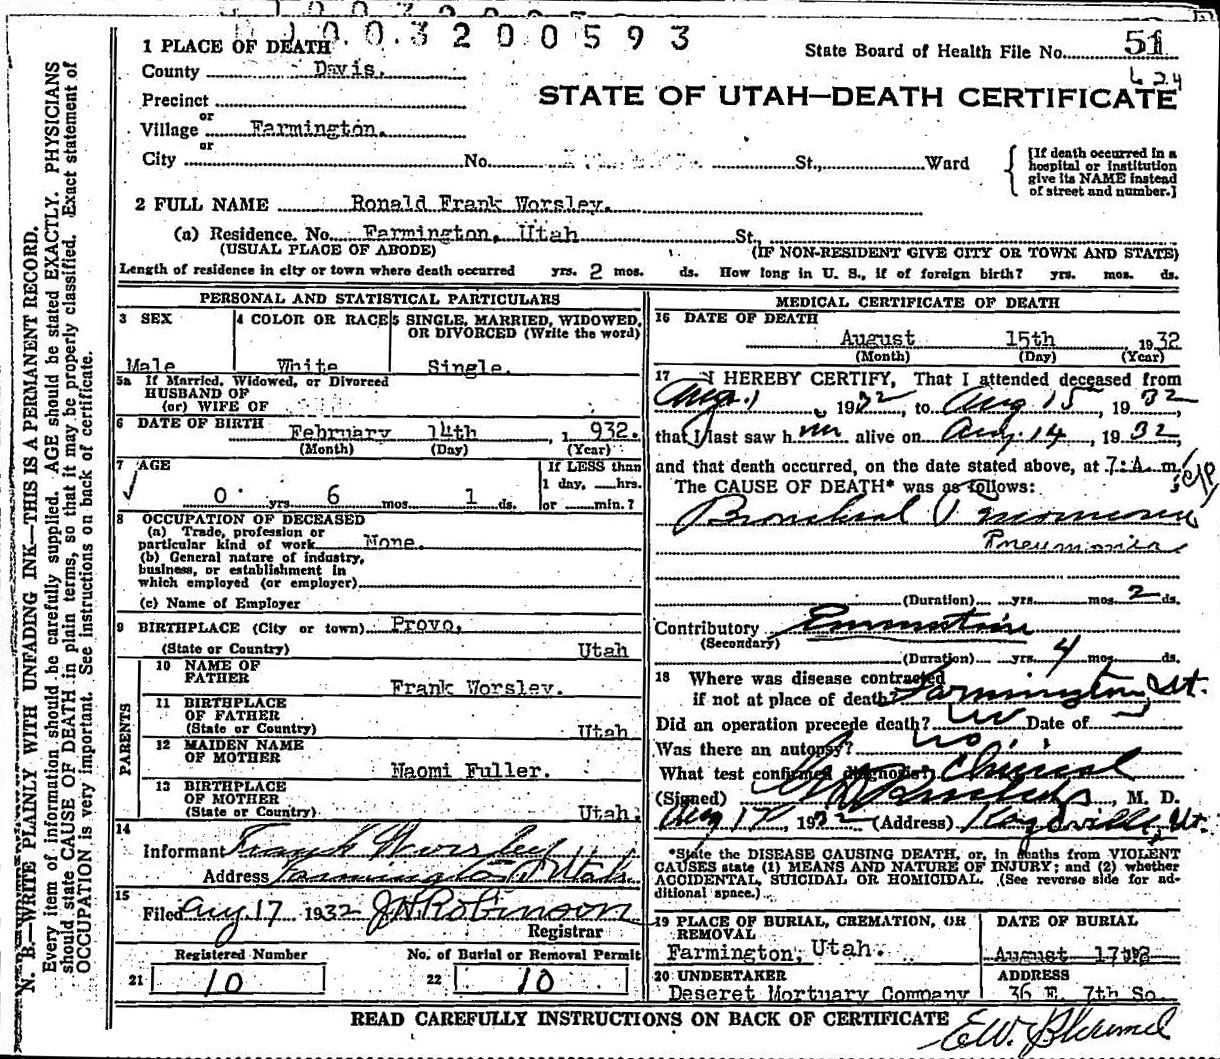 1003200593
1 PLACE OF DEATH
State Board of Health File No. 51
County Davis.
624
Precinct
STATE OF UTAH—DEATH CERTIFICATE
or
Village Farmington.
or
City No. St., Ward
[If death occurred in a hospital or institution give its NAME instead of street and number.]
2 FULL NAME Ronald Frank Worsley.
(a) Residence. No. Farmington, Utah St.
(USUAL PLACE OF ABODE) (IF NON-RESIDENT GIVE CITY OR TOWN AND STATE)
Length of residence in city or town where death occurred yrs. 2 mos. ds. How long in U. S., if of foreign birth? yrs. mos. ds.
PERSONAL AND STATISTICAL PARTICULARS
3 SEX
Male
4 COLOR OR RACE
White
5 SINGLE, MARRIED, WIDOWED, OR DIVORCED (Write the word)
Single.
5a If Married, Widowed, or Divorced
HUSBAND OF
(or) WIFE OF
6 DATE OF BIRTH February 14th, 1932.
(Month) (Day) (Year)
7 AGE
0 yrs. 6 mos. 1 ds.
If LESS than
1 day, hrs.
or min.?
8 OCCUPATION OF DECEASED
(a) Trade, profession or
particular kind of work None.
(b) General nature of industry,
business, or establishment in
which employed (or employer)
(c) Name of Employer
9 BIRTHPLACE (City or town) Provo,
(State or Country) Utah
PARENTS
10 NAME OF
FATHER Frank Worsley.
11 BIRTHPLACE
OF FATHER
(State or Country) Utah
12 MAIDEN NAME
OF MOTHER
Naomi Fuller.
13 BIRTHPLACE
OF MOTHER
(State or Country) Utah.
14
Informant Frank Worsley
Address Farmington Utah
15
Filed Aug 17 1932 J.H. Robinson
Registrar
Registered Number
21 10
No. of Burial or Removal Permit
22 10
MEDICAL CERTIFICATE OF DEATH
16 DATE OF DEATH
August 15th 1932
(Month) (Day) (Year)
17 I HEREBY CERTIFY, That I attended deceased from
Aug. 1, 1932, to Aug 15, 1932,
that I last saw him alive on Aug. 14, 1932,
and that death occurred, on the date stated above, at 7:A m.
The CAUSE OF DEATH* was as follows:
Bronchial Pneumonia
Pneumonia
(Duration) yrs. mos. 2 ds.
Contributory
(Secondary)
(Duration) yrs. 4 mos. ds.
18 Where was disease contracted
if not at place of death? Farmington, Ut.
Did an operation precede death? no Date of
Was there an autopsy? no
What test confirmed diagnosis? Clinical
(Signed) , M. D.
Aug 17, 1932 (Address) Kaysville, Ut.
*State the DISEASE CAUSING DEATH, or, in deaths from VIOLENT
CAUSES state (1) MEANS AND NATURE OF INJURY; and (2) whether
ACCIDENTAL, SUICIDAL OR HOMICIDAL. (See reverse side for ad-
ditional space.)
19 PLACE OF BURIAL, CREMATION, OR
REMOVAL
Farmington, Utah.
DATE OF BURIAL
August 17th
20 UNDERTAKER
Deseret Mortuary Company
ADDRESS
36 E. 7th So.
READ CAREFULLY INSTRUCTIONS ON BACK OF CERTIFICATE
N. B.—WRITE PLAINLY WITH UNFADING INK—THIS IS A PERMANENT RECORD.
Every item of information should be carefully supplied. AGE should be stated EXACTLY. PHYSICIANS
should state CAUSE OF DEATH in plain terms, so that it may be properly classified. Exact statement of
OCCUPATION is very important. See instructions on back of certificate.